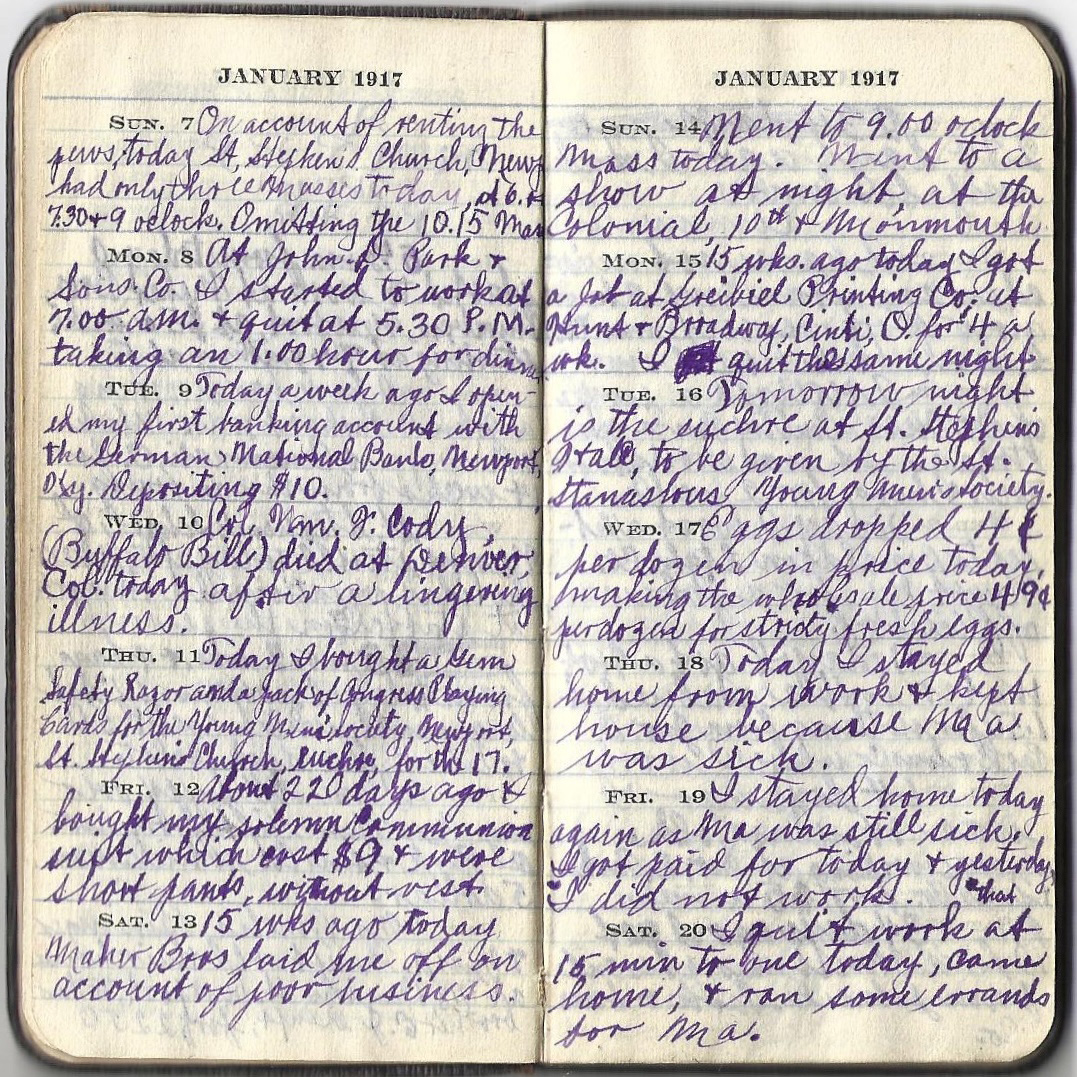 JANUARY 1917
SUN. 7 On account of renting the
pews, today St, Stephen's Church, Newp
had only three masses today, at 6. &
7.30 & 9 oclock. Omitting the 10.15 Mass
MON. 8 At John D. Park &
Sons. Co. I started to work at
7.00 a.m. & quit at 5.30 P.M.
taking an 1.00 hour for dinner
TUE. 9 Today a week ago I open-
ed my first banking account with
the German National Bank, Newport,
Ky. Depositing $10.
WED. 10 Col. Wm. F. Cody,
(Buffalo Bill) died at Denver,
Col. today after a lingering
illness.
THU. 11 Today I bought a Gem
Safety Razor and a pack of Congress Playing
Cards for the Young Men's society, Newport,
St. Stephens Church, euchre, for the 17.
FRI. 12 About 220 days ago I
bought my solemn Communion
suit which cost $9 & were
short pants, without vest.
SAT. 13 15 wks ago today
Maher Bros laid me off on
account of poor business.
JANUARY 1917
SUN. 14 Went to 9.00 oclock
Mass today. Went to a
show at night, at the
Colonial, 10th & Monmouth
MON. 15 15 wks. ago today I got
a Job at Greibiel Printing Co. at
Hunt & Broadway, Cinti, O. for 4 a
wk. I quit the same night
TUE. 16 Tomorrow night
is the euchre at St. Stephens
Hall, to be given by the St.
Stanaslous Young Men's society.
WED. 17 Eggs dropped 4¢
per dozen in price today,
making the wholesale price 49¢
per dozen for stricty fresh eggs.
THU. 18 Today I stayed
home from work & kept
house because Ma
was sick.
FRI. 19 I stayed home today
again as Ma was still sick.
I got paid for today & yesterday
I did not work. that
SAT. 20 I quit work at
15 min to one today, came
home, & ran some errands
for Ma.